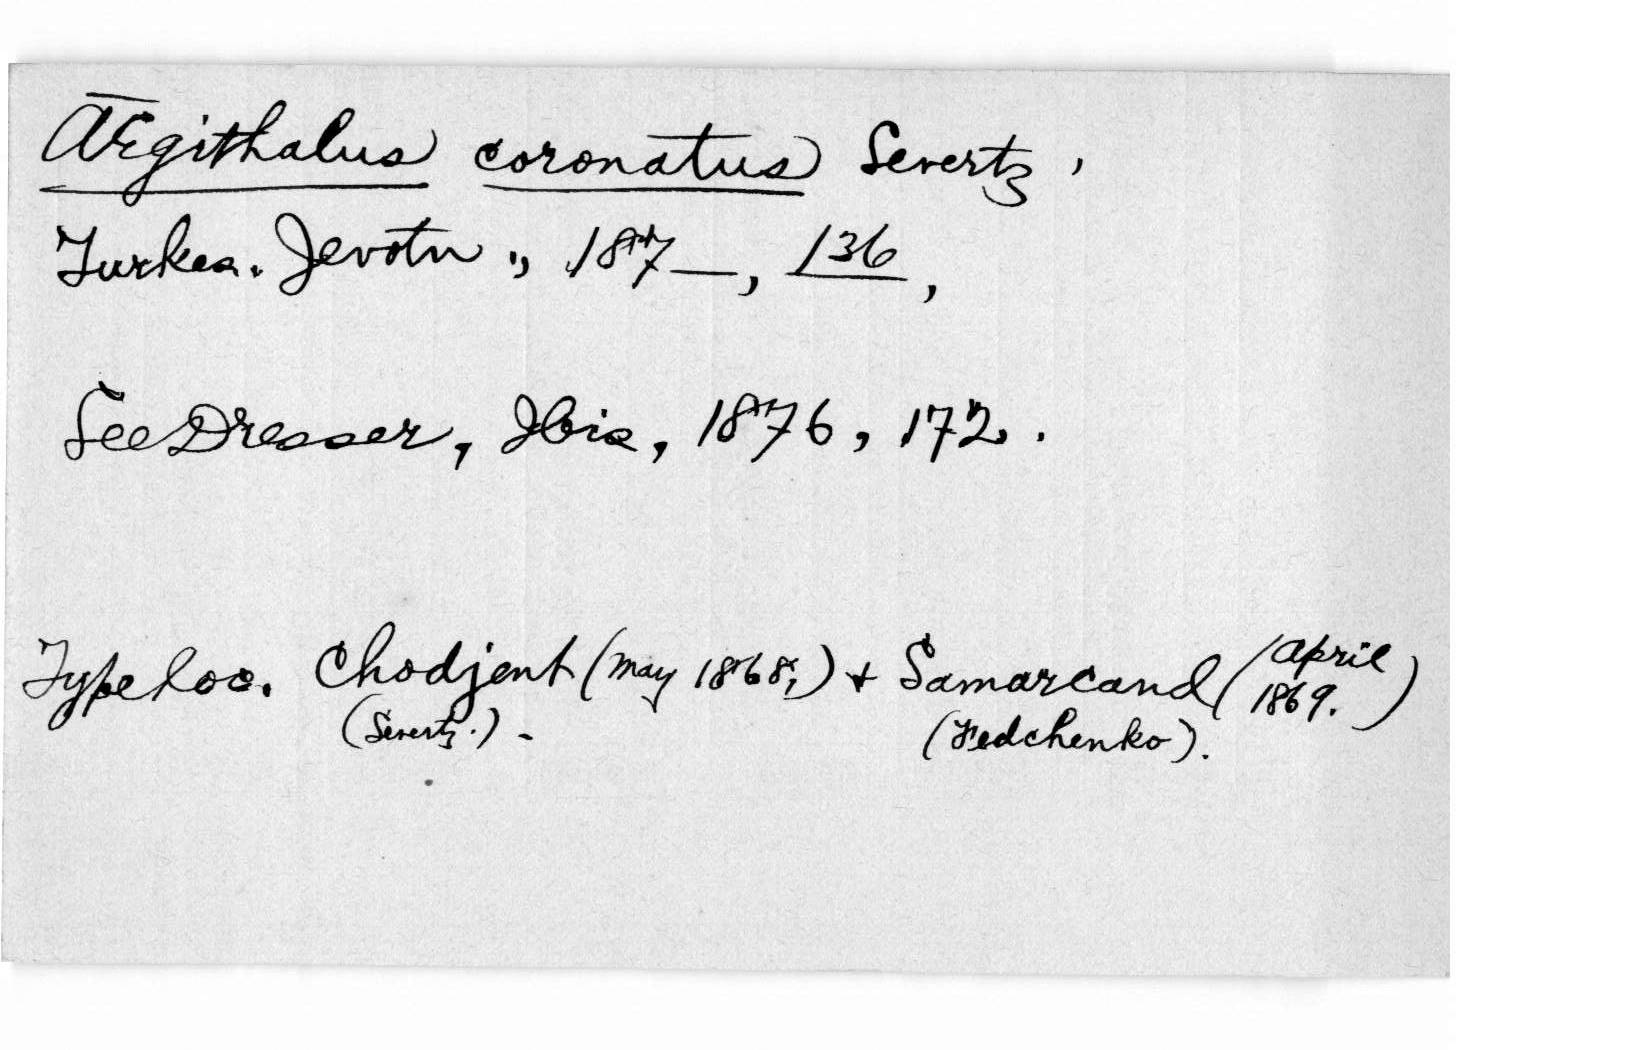 Ægithalus coronatus Severtz,
Turkes. Jevotn., 187_, 136,
See Dresser, Ibis, 1876, 172.
Type loc. Chodjent (May 1868,) + Samarcand (April 1869.)
(Severtz.). (Fedchenko).